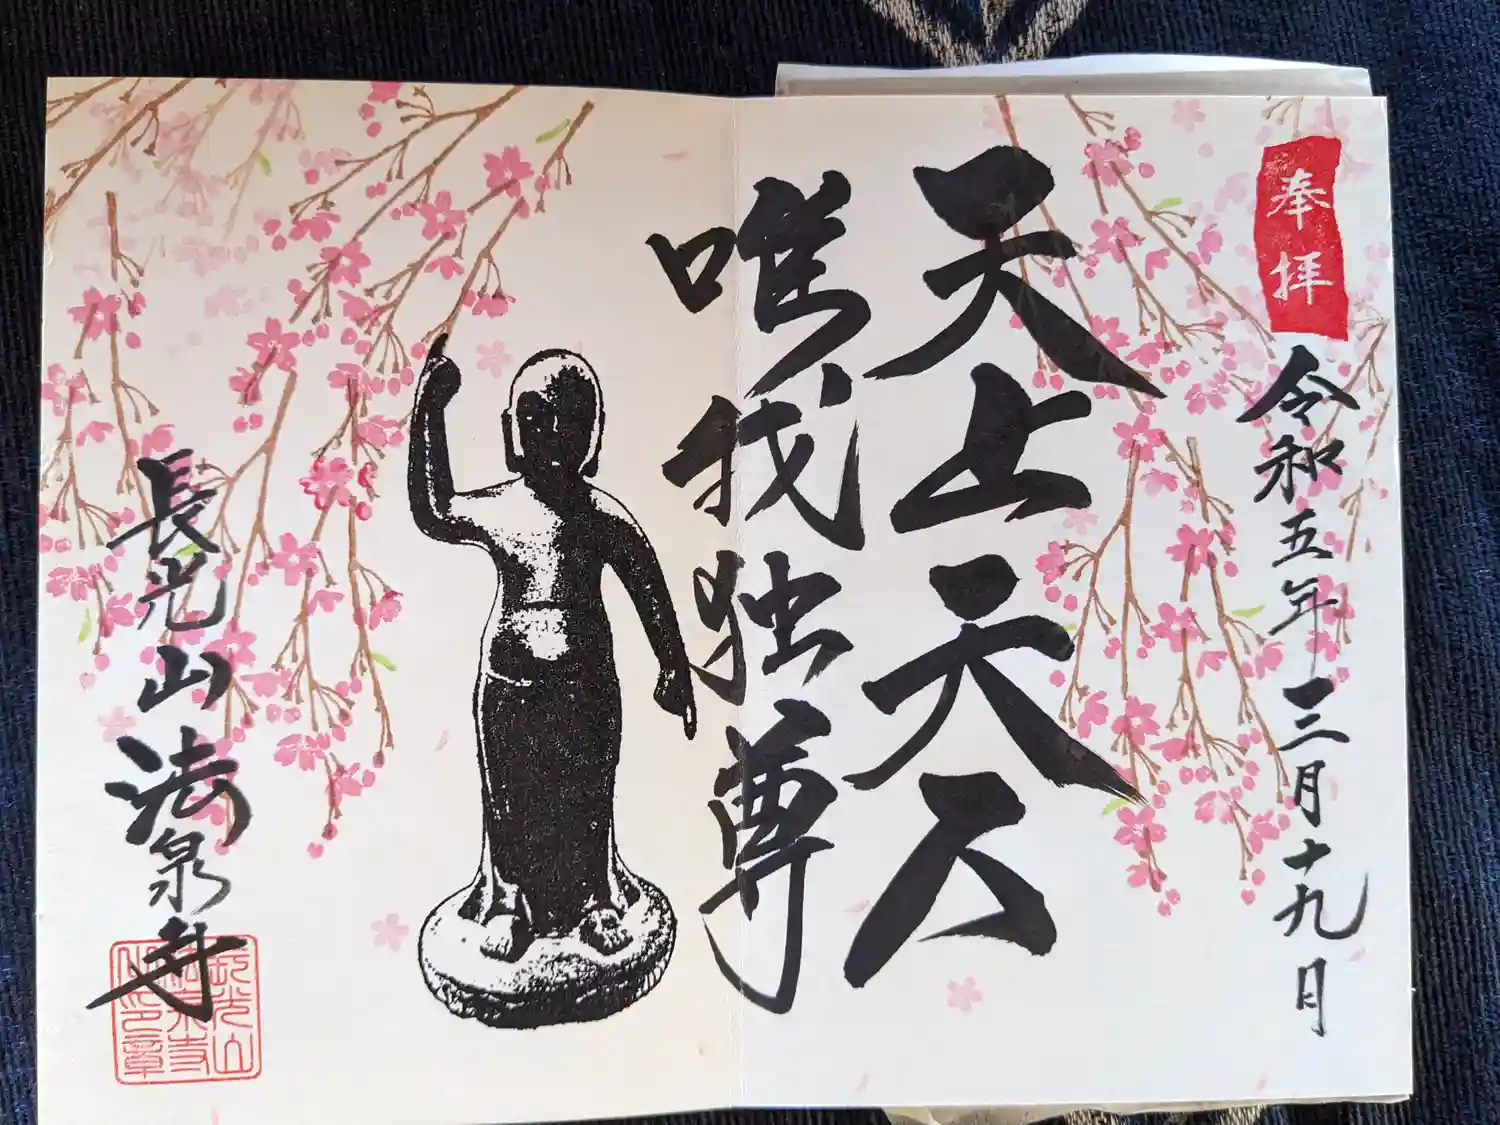 奉拝
令和五年三月十九日
天上天下
唯我独尊
長光山法泉寺
長光山
法泉寺